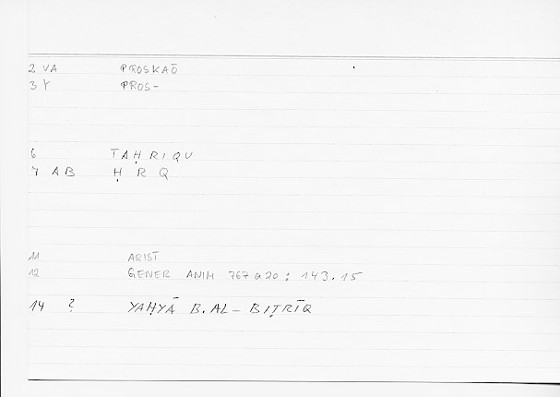 2 VA PROSKAŌ
3 Y PROS-
6 TAḤRIQU
7 AB Ḥ R Q
11 ARIST
12 GENER ANIM 767 a 20 : 143.15
14 ? YAḤYĀ B. AL-BIṬRĪQ